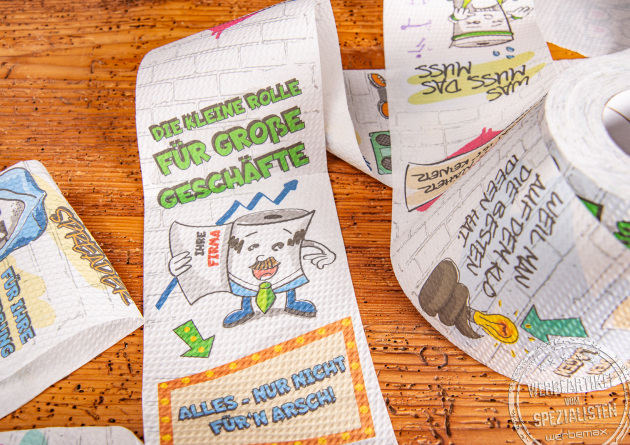 DIE KLEINE ROLLE
FÜR GROßE
GESCHÄFTE
IHRE
FIRMA
ALLES - NUR NICHT
FÜR'N ARSCH!
WAS
MUSS, DAS
MUSS
WEIL MAN
AUF DEM KLO
DIE BESTEN
IDEEN HAT.
FÜR IHRE
WERBEARTIKEL
VOM
SPEZIALISTEN
werbemax